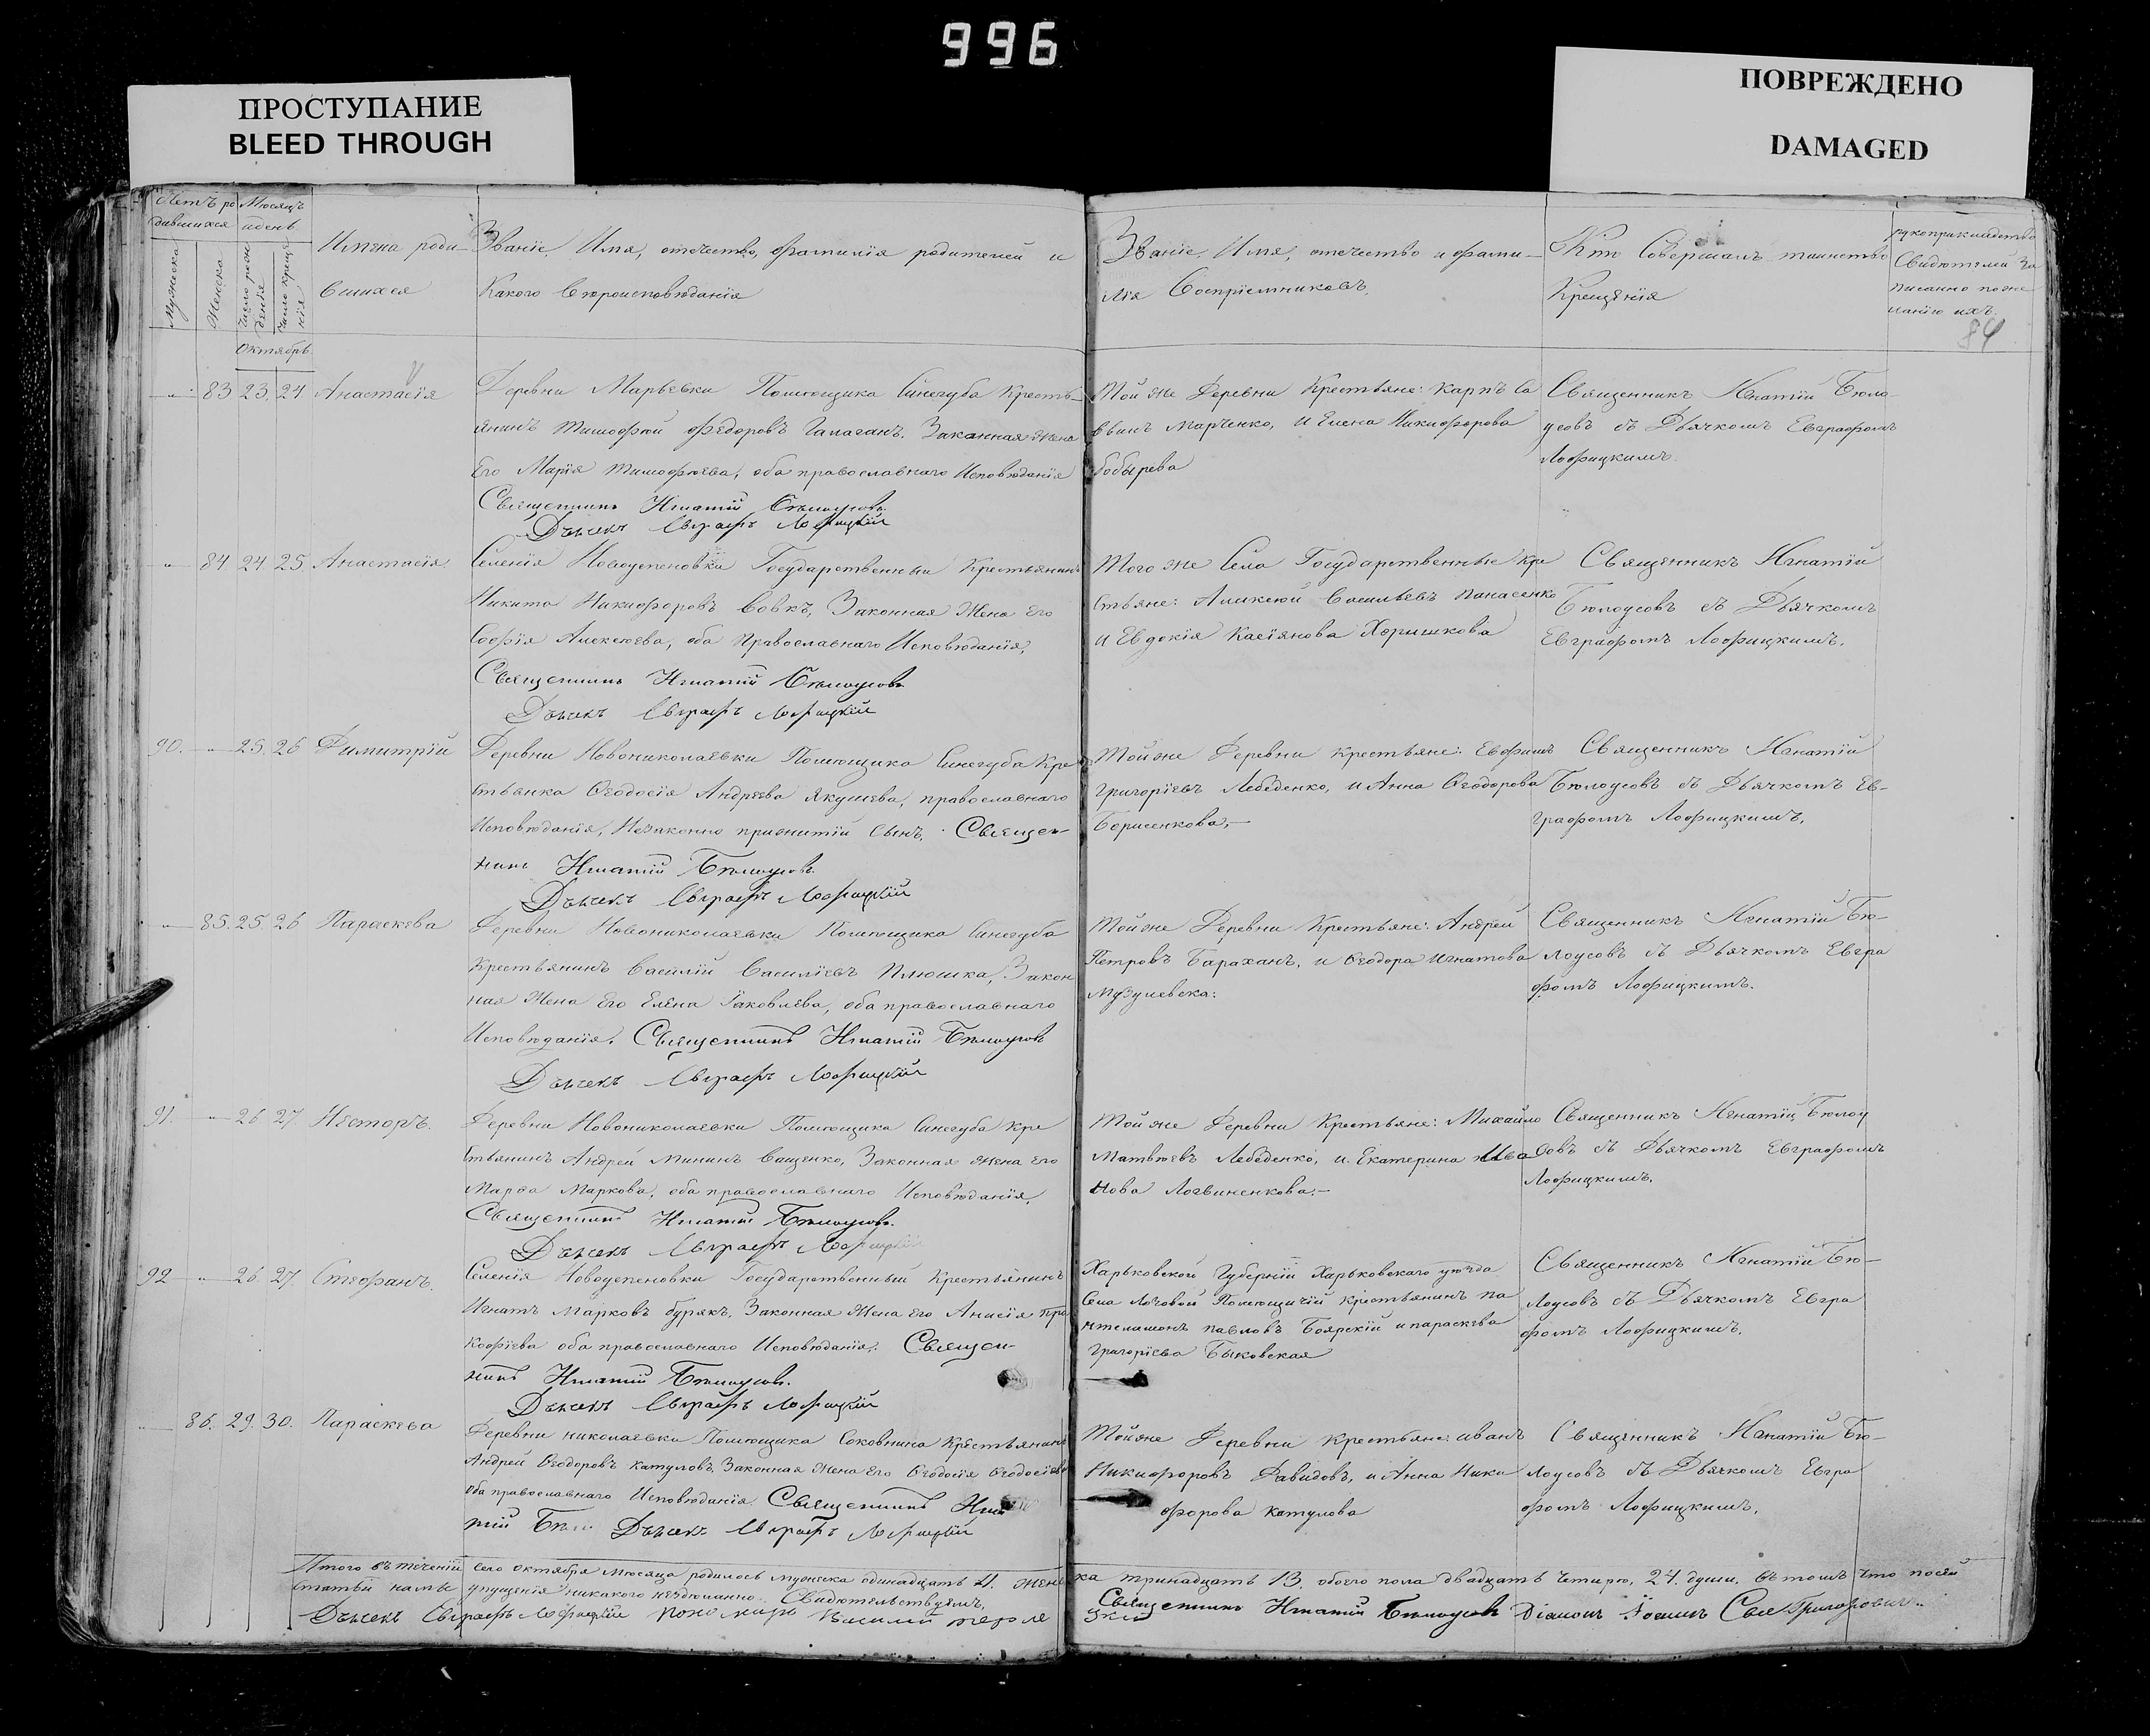 996
ПРОСТУПАНИЕ
BLEED THROUGH
ПОВРЕЖДЕНО
DAMAGED
Счетъ ро Мѣсяцъ
дившихся и день
Мужеска
Женска
Число рож
денія
Число креще
нія
Октябрь
Имена роди
вшихся
Званіе, Имя, отечество, фамилія родителей и
Какого вѣроисповѣданія
Званіе, Имя, отечество и фами–
лія Воспріемниковъ.
Кто Совершалъ таинство
Крещенія
рукоприкладство
Свидѣтелей за
писанно поже
ланію ихъ.
84
„ 83 23. 24. Анастасія
Деревни Марьевки Помѣщика Синегуба Кресть–
янинъ Тимофѣй Федоровъ Галаганъ, Законная Жена
Его Марія Тимофѣева, оба православнаго Исповѣданія
Священникъ Игнатій Бѣлоусовъ
Дьячекъ Евграфъ Лофицкій
Той же Деревни Крестьяне: Карпъ Са
ввинъ Марченко, и Елена Никифорова
Бобырева
Священникъ Игнатій Бѣло–
усовъ съ Дьячкомъ Евграфомъ
Лофицкимъ.
„ 84 24. 25. Анастасія
Селенія Новоуспеновки Государственный Крестьянинъ
Никита Никифоровъ Вовкъ, Законная Жена Его
Софія Алексѣева, оба Православнаго Исповѣданія,
Священникъ Игнатій Бѣлоусовъ
Дьячекъ Евграфъ Лофицкій
Того же Села Государственные Кре
стьяне: Алексѣй Васильевъ Панасенко
и Евдокія Касіянова Хоришкова
Священникъ Игнатій
Бѣлоусовъ съ Дьячкомъ
Евграфомъ Лофицкимъ.
90. „ 25. 26 Димитрій
Деревни Новониколаевки Помѣщика Синегуба Кре
стьянка Ѳеодосія Андреева Якушева, православнаго
Исповѣданія, Незаконно прижитій сынъ. Священ–
никъ Игнатій Бѣлоусовъ.
Дьячекъ Евграфъ Лофицкій
Той же Деревни Крестьяне: Евфимъ
Григоріевъ Лебеденко, и Анна Ѳеодорова
Борисенкова,–
Священникъ Игнатій
Бѣлоусовъ съ Дьячкомъ Ев–
графомъ Лофицкимъ.
„ 85. 25. 26 Параскева
Деревни Новониколаевки Помѣщика Синегуба
Крестьянинъ Василій Василіевъ Плюшка, Закон
ная Жена Его Елена Іаковлева, оба православнаго
Исповѣданія. Священникъ Игнатій Бѣлоусовъ
Дьячекъ Евграфъ Лофицкій
Той же Деревни Крестьяне: Андрей
Петровъ Бараханъ, и Ѳеодора Игнатова
Музулевска:
Священникъ Игнатій Бѣ–
лоусовъ съ Дьячкомъ Евгра
фомъ Лофицкимъ.
91. „ 26 27 Несторъ.
Деревни Новониколаевки Помѣщика Синегуба Кре
стьянинъ Андрей Мининъ Ващенко, Законная Жена Его
Марѳа Маркова, оба православнаго Исповѣданія,
Священникъ Игнатій Бѣлоусовъ.
Дьячекъ Евграфъ Лофицкій
Той же Деревни Крестьяне: Михайло
Матвѣевъ Лебеденко, и Екатерина Ива
нова Логвиненкова.–
Священникъ Игнатій Бѣлоу
совъ съ Дьячкомъ Евграфомъ
Лофицкимъ.
92 „ 26. 27. Стефанъ.
Селенія Новоуспеновки Государственный Крестьянинъ
Игнатъ Марковъ Бурякъ, Законная Жена Его Анисія Про
кофіева оба православнаго Исповѣданія. Священ–
никъ Игнатій Бѣлоусовъ.
Дьячекъ Евграфъ Лофицкій
Харьковской Губерніи Харьковскаго уѣзда
Села Лозовой Помѣщичій Крестьянинъ Па
нтелимонъ Павловъ Боярскій и Параскева
Григоріева Быковская
Священникъ Игнатій Бѣ–
лоусовъ съ Дьячкомъ Евгра
фомъ Лофицкимъ.
„ 86. 29. 30. Параскева
Деревни Николаевки Помѣщика Соковнина Крестьянинъ
Андрей Ѳеодоровъ Катуловъ, Законная Жена Его Ѳеодосія Ѳеодосіева
оба православнаго Исповѣданія. Священникъ Игна
тій Бѣл Дьячекъ Евграфъ Лофицкій
Той же Деревни Крестьяне: Иванъ
Никифоровъ Давидовъ, и Анна Ники
форова Катулова
Священникъ Игнатій Бѣ–
лоусовъ съ Дьячкомъ Евгра
фомъ Лофицкимъ.
Итого въ теченіи сего октября мѣсяца родилось мужеска одинадцать 11. женска тринадцать 13. обоего пола двадцать четыре, 24. души. въ томъ что посей
статьи нами упущенія никакого нездѣланно. Свидѣтельствуемъ,
Дьячекъ Евграфъ Лофицкій пономарь Василій
Священникъ Игнатій Бѣлоусовъ Діаконъ Іоаннъ